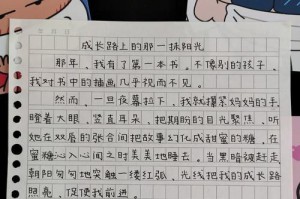 成长路上的那一抹阳光
那年，我有了第一本书。不像别的孩子，
我对书中的插画几乎视而不见。
然而，一旦夜幕拉下，我就攥紧妈妈的手，
瞪着大眼，竖直耳朵，把期盼的目光聚焦，听
她在双唇的张合间把故事幻化成甜蜜的糖，在
蜜糖沁入心间之时美美地睡去。当黑暗被赶走
朝阳句句地突触一缕红弧，光线把我的成长路
照亮，促使我前进。